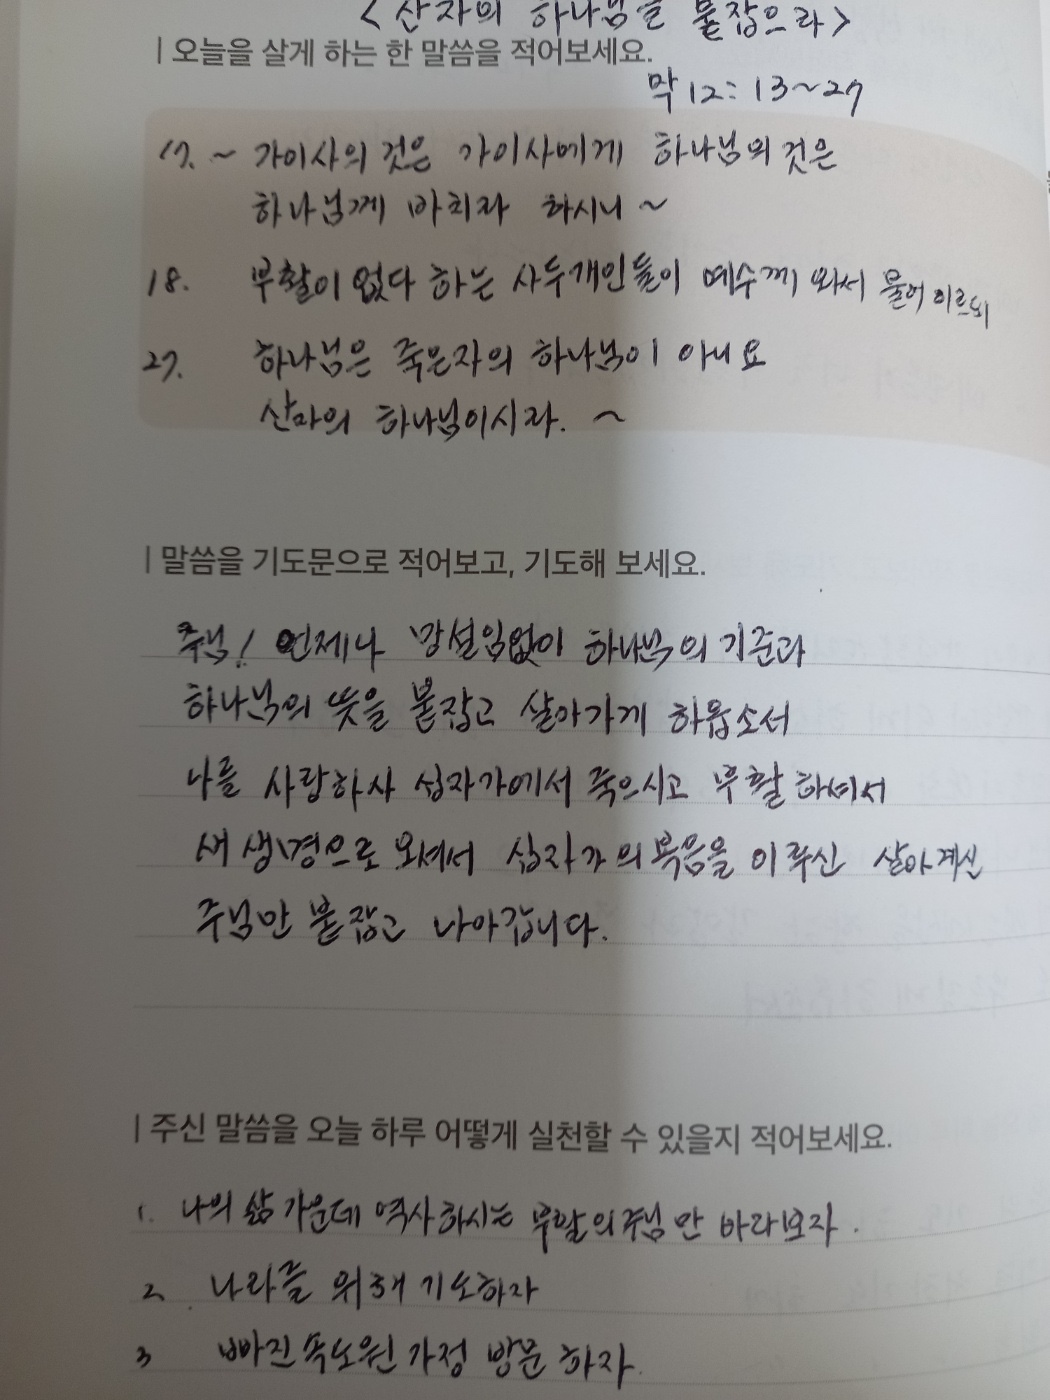 <산자의 하나님을 붙잡으라>
| 오늘을 살게 하는 한 말씀을 적어보세요.
막 12: 13~27
17. ~ 가이사의 것은 가이사에게 하나님의 것은
하나님께 바치라 하시니 ~
18. 부활이 없다 하는 사두개인들이 예수께 와서 물어 이르되
27. 하나님은 죽은자의 하나님이 아니요
산자의 하나님이시라. ~
| 말씀을 기도문으로 적어보고, 기도해 보세요.
주님! 언제나 망설임없이 하나님의 기준과
하나님의 뜻을 붙잡고 살아가게 하옵소서
나를 사랑하사 십자가에서 죽으시고 부활하셔서
새 생명으로 오셔서 십자가의 복음을 이루신 살아계신
주님만 붙잡고 나아갑니다.
| 주신 말씀을 오늘 하루 어떻게 실천할 수 있을지 적어보세요.
1. 나의 삶 가운데 역사하시는 부활의 주님만 바라보자.
2. 나라를 위해 기도하자
3 빠진 속도원 가정 방문 하자.